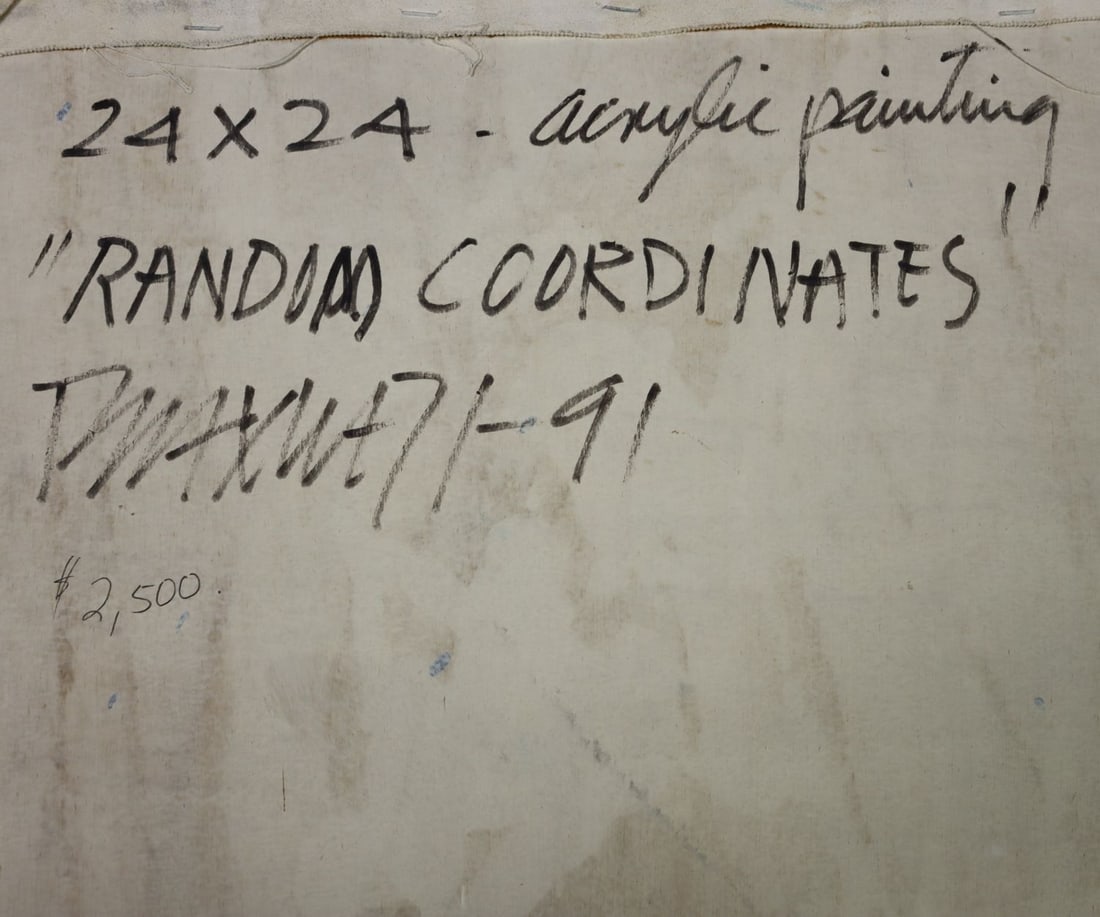 24 X 24 - acrylic painting
"RANDOM COORDINATES"
-91
$2,500.